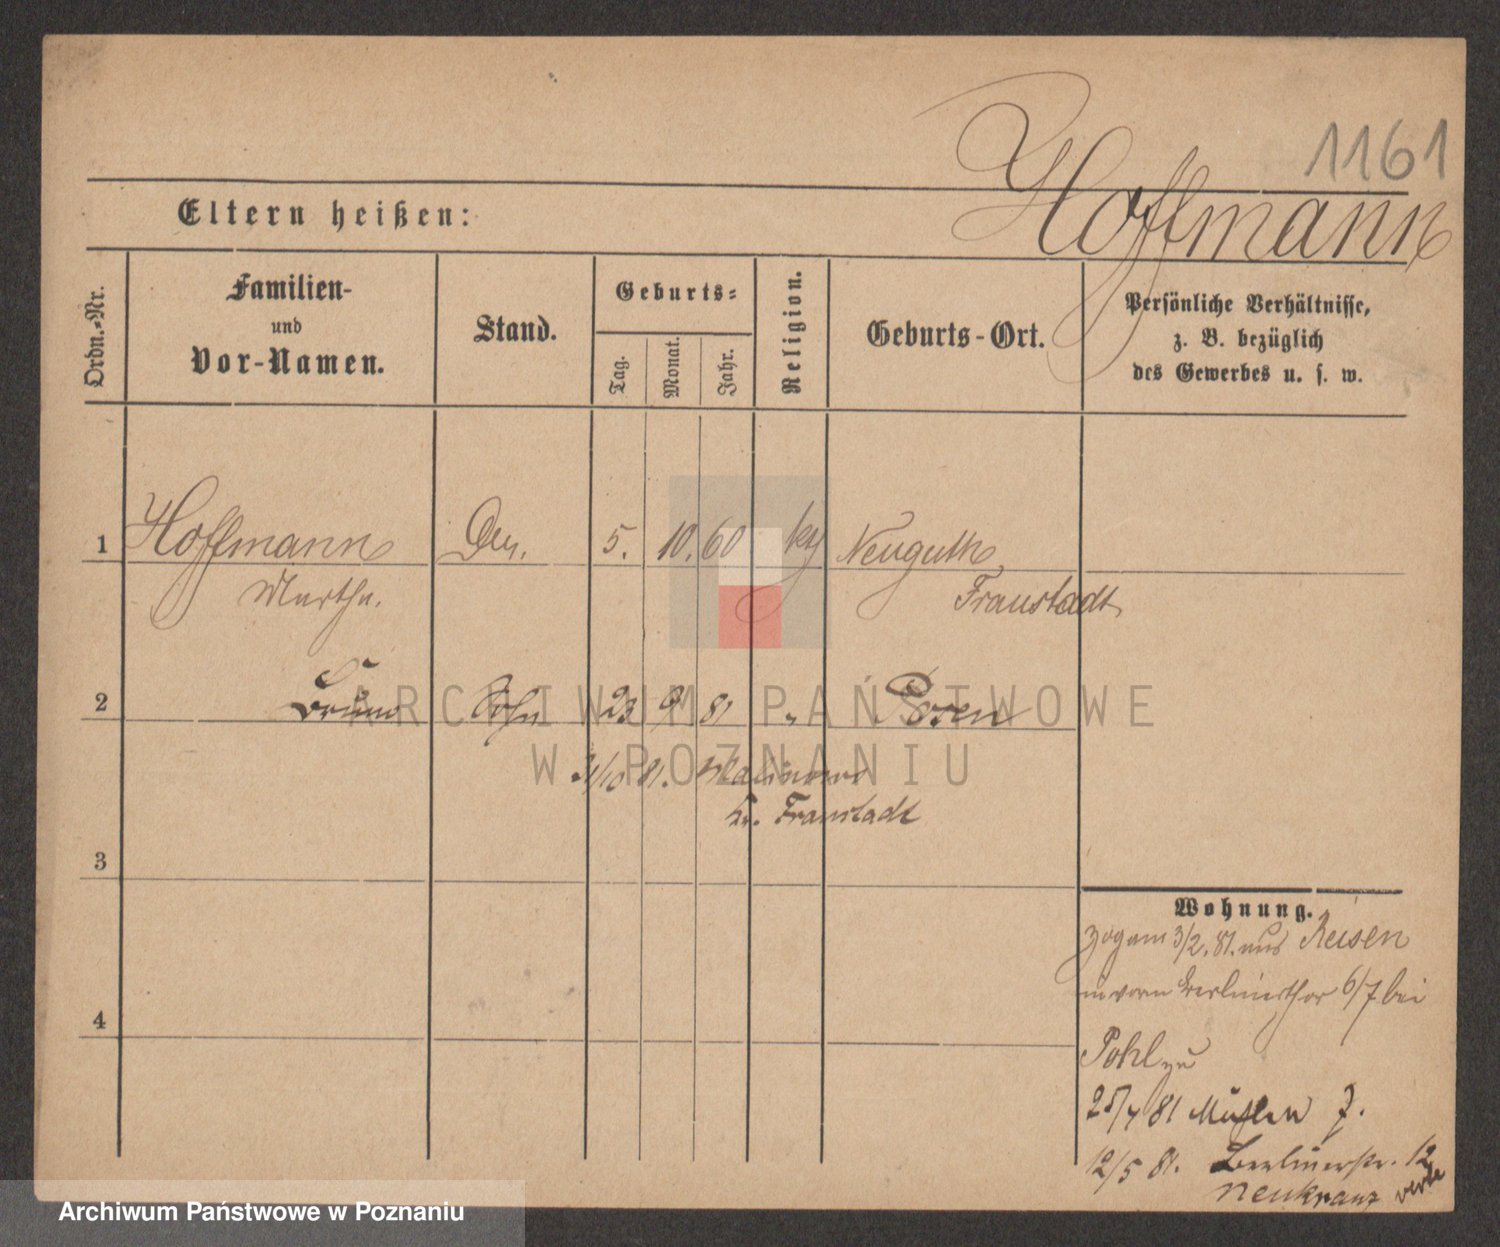 1161
Hoffmann
Eltern heißen:
Ordn.-Nr.
Familien-
und
Vor-Namen.
Stand.
Geburts-
Tag.
Monat.
Jahr.
Religion.
Geburts-Ort.
Persönliche Verhältnisse,
z. B. bezüglich
des Gewerbes u. s. w.
1 Hoffmann 5. 10. 60 Neuguth
Martha. Fraustadt
2 Bruno Sohn 23 9 81 " Posen
31/10 81.
Kr. Fraustadt
3
4
Wohnung.
zog am 3/2. 81. aus Reisen
vorm Berlinerthor 6/7 bei
Pohl zu
81 Mühlen 7.
12/5 81. Berlinerstr. 12
Neukranz
ARCHIWUM PAŃSTWOWE
W POZNANIU
Archiwum Państwowe w Poznaniu